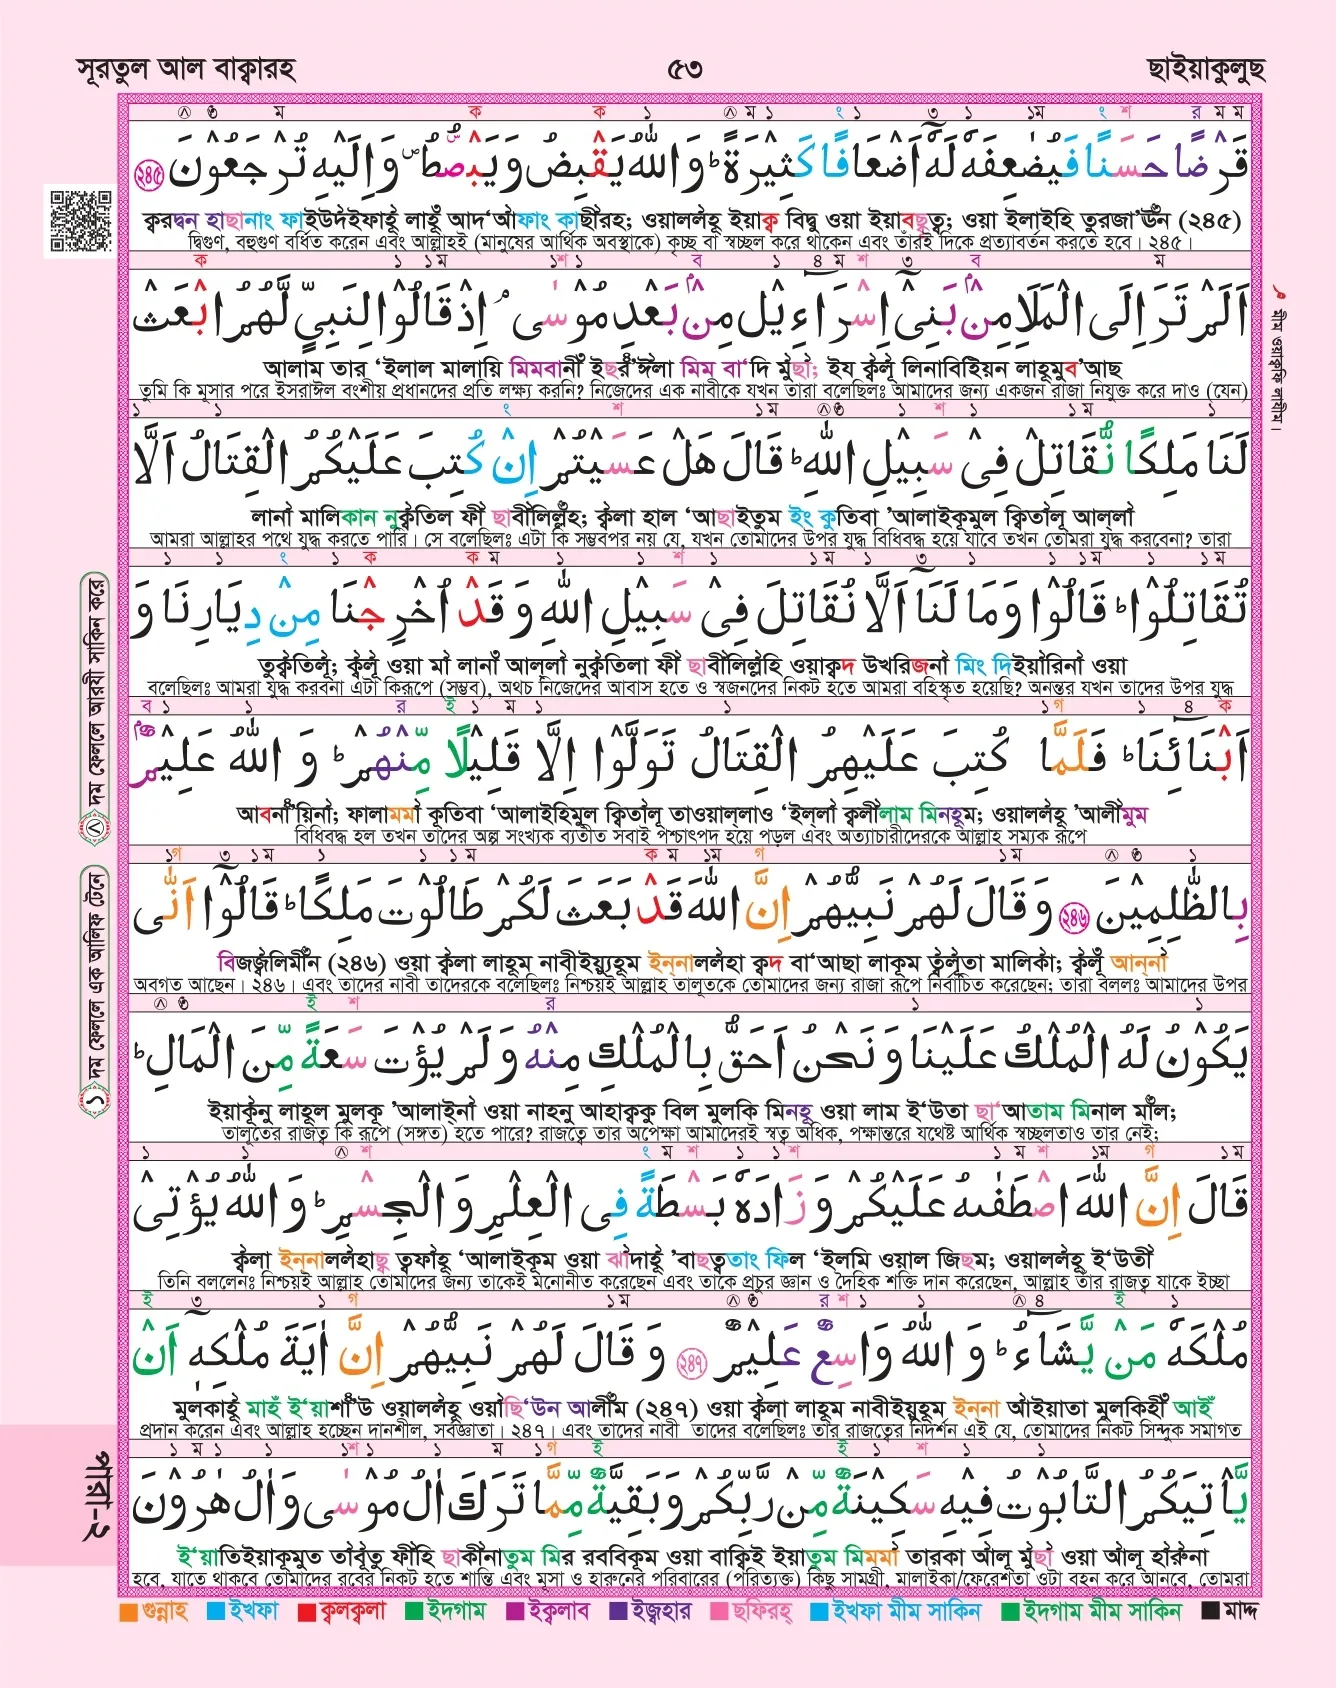 সূরতুল আল বাক্বারহ ৫৩ ছাইয়াকুলুছ
قَرْضًا حَسَنًا فَيُضٰعِفَهٗ لَهٗٓ اَضْعَافًا كَثِيْرَةً ؕ وَ اللّٰهُ يَقْبِضُ وَ يَبْصُۜطُ ۪ وَ اِلَيْهِ تُرْجَعُوْنَ ২৪৫
ক্বরদ্বন হাছানাং ফাইউদইফাহূ লাহূ আদ‘আফাং কাছীরহ; ওয়াললহু ইয়াক্ব বিদ্বু ওয়া ইয়াবছুত্বু; ওয়া ইলাইহি তুরজা’ঊন (২৪৫)
দ্বিগুণ, বহুগুণ বর্ধিত করেন এবং আল্লাহই (মানুষের আর্থিক অবস্থাকে) কৃচ্ছ বা স্বচ্ছল করে থাকেন এবং তাঁরই দিকে প্রত্যাবর্তন করতে হবে। ২৪৫।
اَلَمْ تَرَ اِلَى الْمَلَاِ مِنْۢ بَنِىْۤ اِسْرَآءِيْلَ مِنْۢ بَعْدِ مُوْسٰى ۘ اِذْ قَالُوْا لِنَبِىٍّ لَّهُمُ ابْعَثْ
আলাম তার ‘ইলাল মালায়ি মিমবানী ইছর’ঈলা মিম বা‘দি মুছা; ইয ক্বলূ লিনাবিইয়িন লাহুমুব’আছ
তুমি কি মূসার পরে ইসরাঈল বংশীয় প্রধানদের প্রতি লক্ষ্য করনি? নিজেদের এক নাবীকে যখন তারা বলেছিলঃ আমাদের জন্য একজন রাজা নিযুক্ত করে দাও (যেন)
لَنَا مَلِكًا نُّقَاتِلْ فِىْ سَبِيْلِ اللّٰهِ ؕ قَالَ هَلْ عَسَيْتُمْ اِنْ كُتِبَ عَلَيْكُمُ الْقِتَالُ اَلَّا
লানা মালিকান নুক্বতিল ফী ছাবীলিল্লহ; ক্বলা হাল ‘আছাইতুম ইং কুতিবা ’আলাইকুমুল ক্বিতালু আল্লা
আমরা আল্লাহর পথে যুদ্ধ করতে পারি। সে বলেছিলঃ এটা কি সম্ভবপর নয় যে, যখন তোমাদের উপর যুদ্ধ বিধিবদ্ধ হয়ে যাবে তখন তোমরা যুদ্ধ করবেনা? তারা
تُقَاتِلُوْا ؕ قَالُوْا وَمَا لَنَاۤ اَلَّا نُقَاتِلَ فِىْ سَبِيْلِ اللّٰهِ وَ قَدْ اُخْرِجْنَا مِنْ دِيَارِنَا وَ
তুক্বতিলূ; ক্বলূ ওয়া মা লানা আল্লা নুক্বতিলা ফী ছাবীলিল্লহি ওয়াক্বদ উখরিজনা মিং দিইয়ারিনা ওয়া
বলেছিলঃ আমরা যুদ্ধ করবনা এটা কিরূপে (সম্ভব), অথচ নিজেদের আবাস হতে ও স্বজনদের নিকট হতে আমরা বহিস্কৃত হয়েছি? অনন্তর যখন তাদের উপর যুদ্ধ
اَبْنَآئِنَا ؕ فَلَمَّا كُتِبَ عَلَيْهِمُ الْقِتَالُ تَوَلَّوْا اِلَّا قَلِيْلًا مِّنْهُمْ ؕ وَ اللّٰهُ عَلِيْمٌۢ
আবনা’য়িনা; ফালামমা কুতিবা ‘আলাইহিমুল ক্বিতালু তাওয়াল্লাও ‘ইল্লা ক্বলীলাম মিনহুম; ওয়াললহু ’আলীমুম
বিধিবদ্ধ হল তখন তাদের অল্প সংখ্যক ব্যতীত সবাই পশ্চাৎপদ হয়ে পড়ল এবং অত্যাচারীদেরকে আল্লাহ সম্যক রূপে
بِالظّٰلِمِيْنَ ২৪৬ وَ قَالَ لَهُمْ نَبِيُّهُمْ اِنَّ اللّٰهَ قَدْ بَعَثَ لَكُمْ طَالُوْتَ مَلِكًا ؕ قَالُوْۤا اَنّٰى
বিজজলিমীন (২৪৬) ওয়া ক্বলা লাহুম নাবীইয়ুহুম ইন্নাললহা ক্বদ বা‘আছা লাকুম ত্বলূতা মালিকা; ক্বলূ আন্না
অবগত আছেন। ২৪৬। এবং তাদের নাবী তাদেরকে বলেছিলঃ নিশ্চয়ই আল্লাহ তালূতকে তোমাদের জন্য রাজা রূপে নির্বাচিত করেছেন; তারা বললঃ আমাদের উপর
يَكُوْنُ لَهُ الْمُلْكُ عَلَيْنَا وَ نَحْنُ اَحَقُّ بِالْمُلْكِ مِنْهُ وَ لَمْ يُؤْتَ سَعَةً مِّنَ الْمَالِ ؕ
ইয়াকূনু লাহুল মুলকু ’আলাইনা ওয়া নাহনু আহাক্বকু বিল মুলকি মিনহু ওয়া লাম ই‘উতা ছা‘আতাম মিনাল মাল;
তালূতের রাজত্ব কি রূপে (সঙ্গত) হতে পারে? রাজত্বে তার অপেক্ষা আমাদেরই স্বত্ব অধিক, পক্ষান্তরে যথেষ্ট আর্থিক স্বচ্ছলতাও তার নেই;
قَالَ اِنَّ اللّٰهَ اصْطَفٰىهُ عَلَيْكُمْ وَ زَادَهٗ بَسْطَةً فِى الْعِلْمِ وَ الْجِسْمِ ؕ وَ اللّٰهُ يُؤْتِىْ
ক্বলা ইন্নাললহাছ ত্বফাহু ‘আলাইকুম ওয়া ঝাদাহূ ’বাছত্বতাং ফিল ‘ইলমি ওয়াল জিছম; ওয়াললহু ই‘উতী
তিনি বললেনঃ নিশ্চয়ই আল্লাহ তোমাদের জন্য তাকেই মনোনীত করেছেন এবং তাকে প্রচুর জ্ঞান ও দৈহিক শক্তি দান করেছেন, আল্লাহ তাঁর রাজত্ব যাকে ইচ্ছা
مُلْكَهٗ مَنْ يَّشَآءُ ؕ وَ اللّٰهُ وَاسِعٌ عَلِيْمٌ ২৪৭ وَ قَالَ لَهُمْ نَبِيُّهُمْ اِنَّ اٰيَةَ مُلْكِهٖۤ اَنْ
মুলকাহূ মাইঁ ই‘য়াশা‘উ ওয়াললহু ওয়াছি‘উন আলীম (২৪৭) ওয়া ক্বলা লাহুম নাবীইয়ুহুম ইন্না আইয়াতা মুলকিহী আইঁ
প্রদান করেন এবং আল্লাহ হচ্ছেন দানশীল, সর্বজ্ঞাতা। ২৪৭। এবং তাদের নাবী তাদের বলেছিলঃ তার রাজত্বের নিদর্শন এই যে, তোমাদের নিকট সিন্দুক সমাগত
يَّاْتِيَكُمُ التَّابُوْتُ فِيْهِ سَكِيْنَةٌ مِّنْ رَّبِّكُمْ وَ بَقِيَّةٌ مِّمَّا تَرَكَ اٰلُ مُوْسٰى وَ اٰلُ هٰرُوْنَ
ই‘য়াতিইয়াকুমুত তাবূতু ফীহি ছাকীনাতুম মির রববিকুম ওয়া বাক্বিই ইয়াতুম মিমমা তারকা আলু মুছা ওয়া আলু হারূনা
হবে, যাতে থাকবে তোমাদের রবের নিকট হতে শান্তি এবং মূসা ও হারুনের পরিবারের (পরিত্যক্ত) কিছু সামগ্রী, মালাইকা/ফেরেশতা ওটা বহন করে আনবে, তোমরা
গুন্নাহ ইখফা ক্বলক্বলা ইদগাম ইক্বলাব ইজ্বহার ছফিরহ্ ইখফা মীম সাকিন ইদগাম মীম সাকিন মাদ্দ
মীম ওয়াকৃফি লাযীম।
দম ফেললে আরযী সাকিন করে
দম ফেললে এক আলিফ টেনে
পারা-২